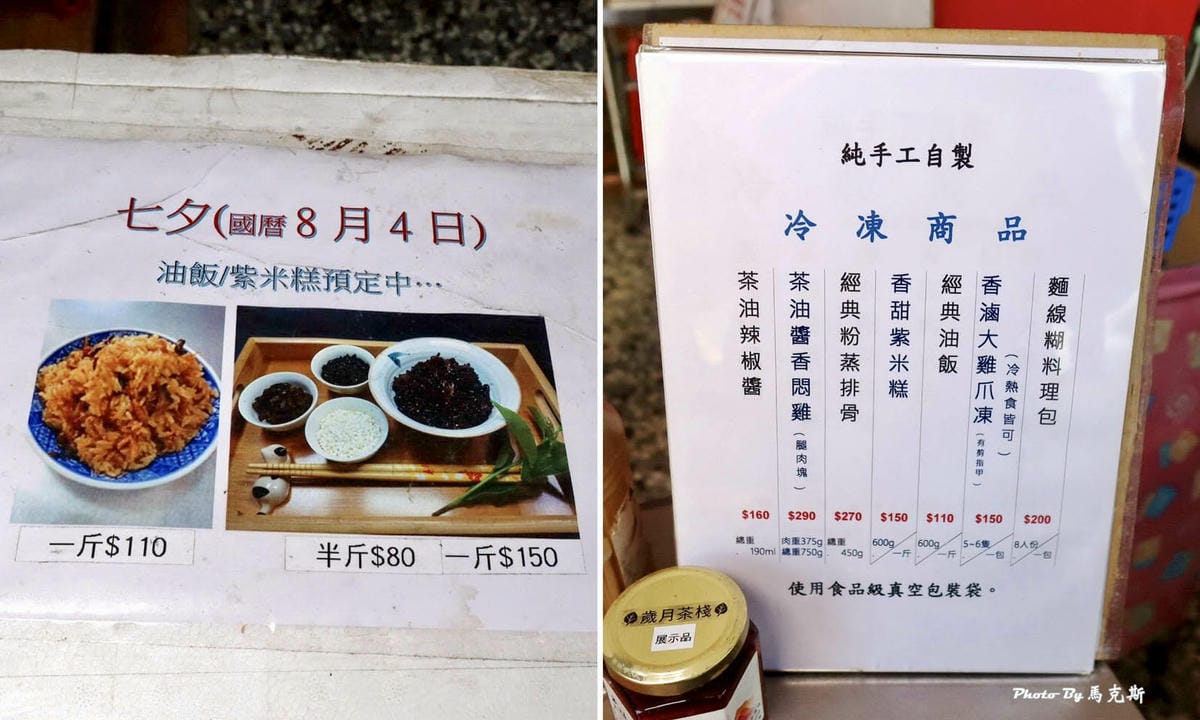 七夕(國曆8月4日)
油飯/紫米糕預定中…
一斤$110
半斤$80
一斤$150
純手工自製
冷凍商品
麵線糊料理包
$200
8人份/一包
香滷大雞爪凍(有剪指甲)
(冷熱食皆可)
$150
5~6隻/一包
經典油飯
$110
600g/一斤
香甜紫米糕
$150
600g/一斤
經典粉蒸排骨
$270
總重
450g
茶油醬香悶雞(腿肉塊)
$290
肉重375g
總重750g
茶油辣椒醬
$160
總重
190ml
使用食品級真空包裝袋。
歲月茶棧
展示品
Photo By 馬克斯